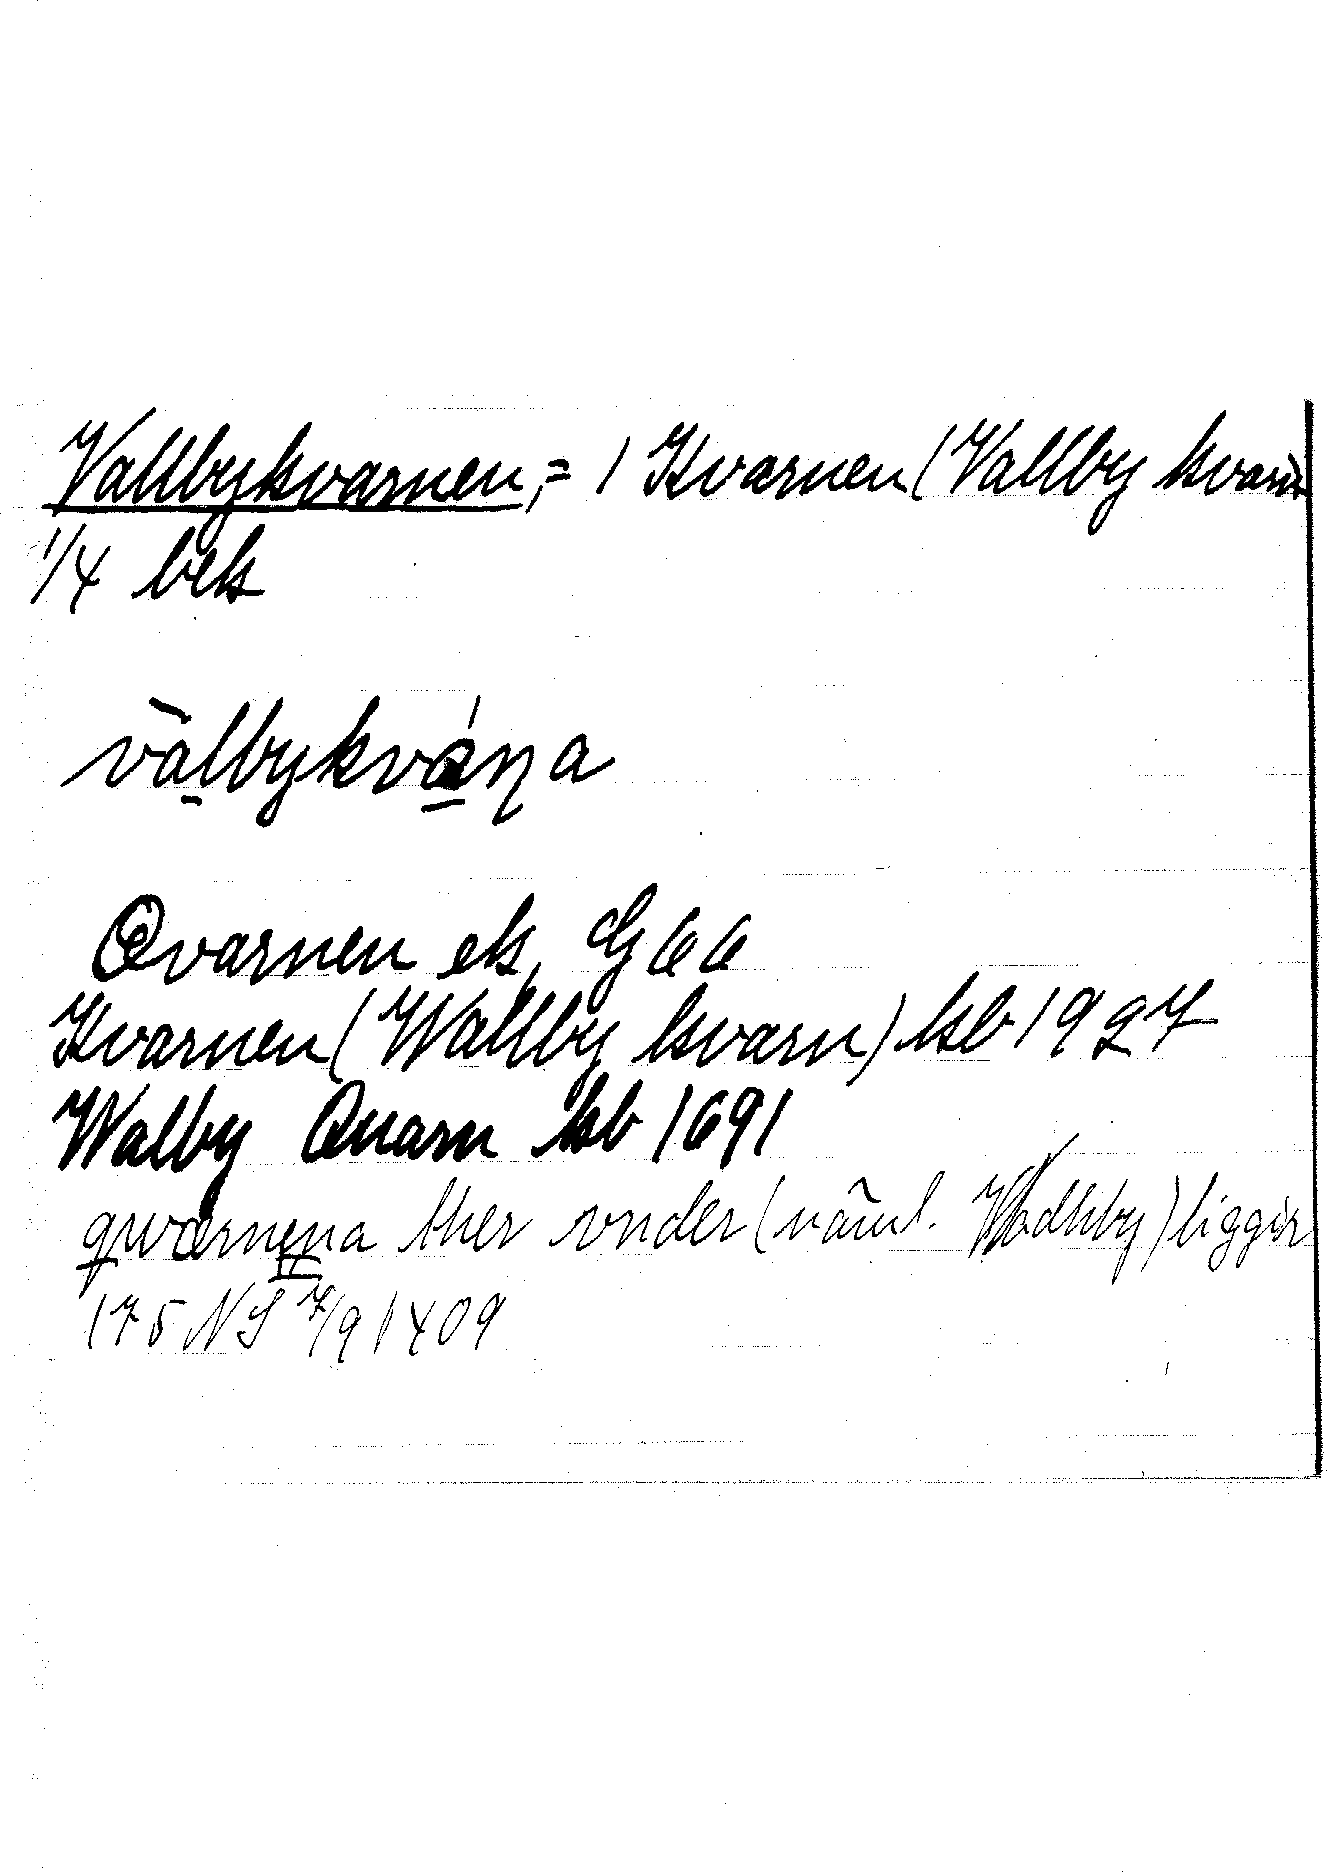 Vallbykvarnen, = 1 Kvarnen (Vallby kvarn
1/4 bek
vàlbykváṇa
Qvarnen ek, G66
Kvarnen (Wallby kvarn) kb 1927
Walby Quarn kb 1691
qwærnena ther vnder (näml. Wadhby) liggir
175 NS 7/9 1409